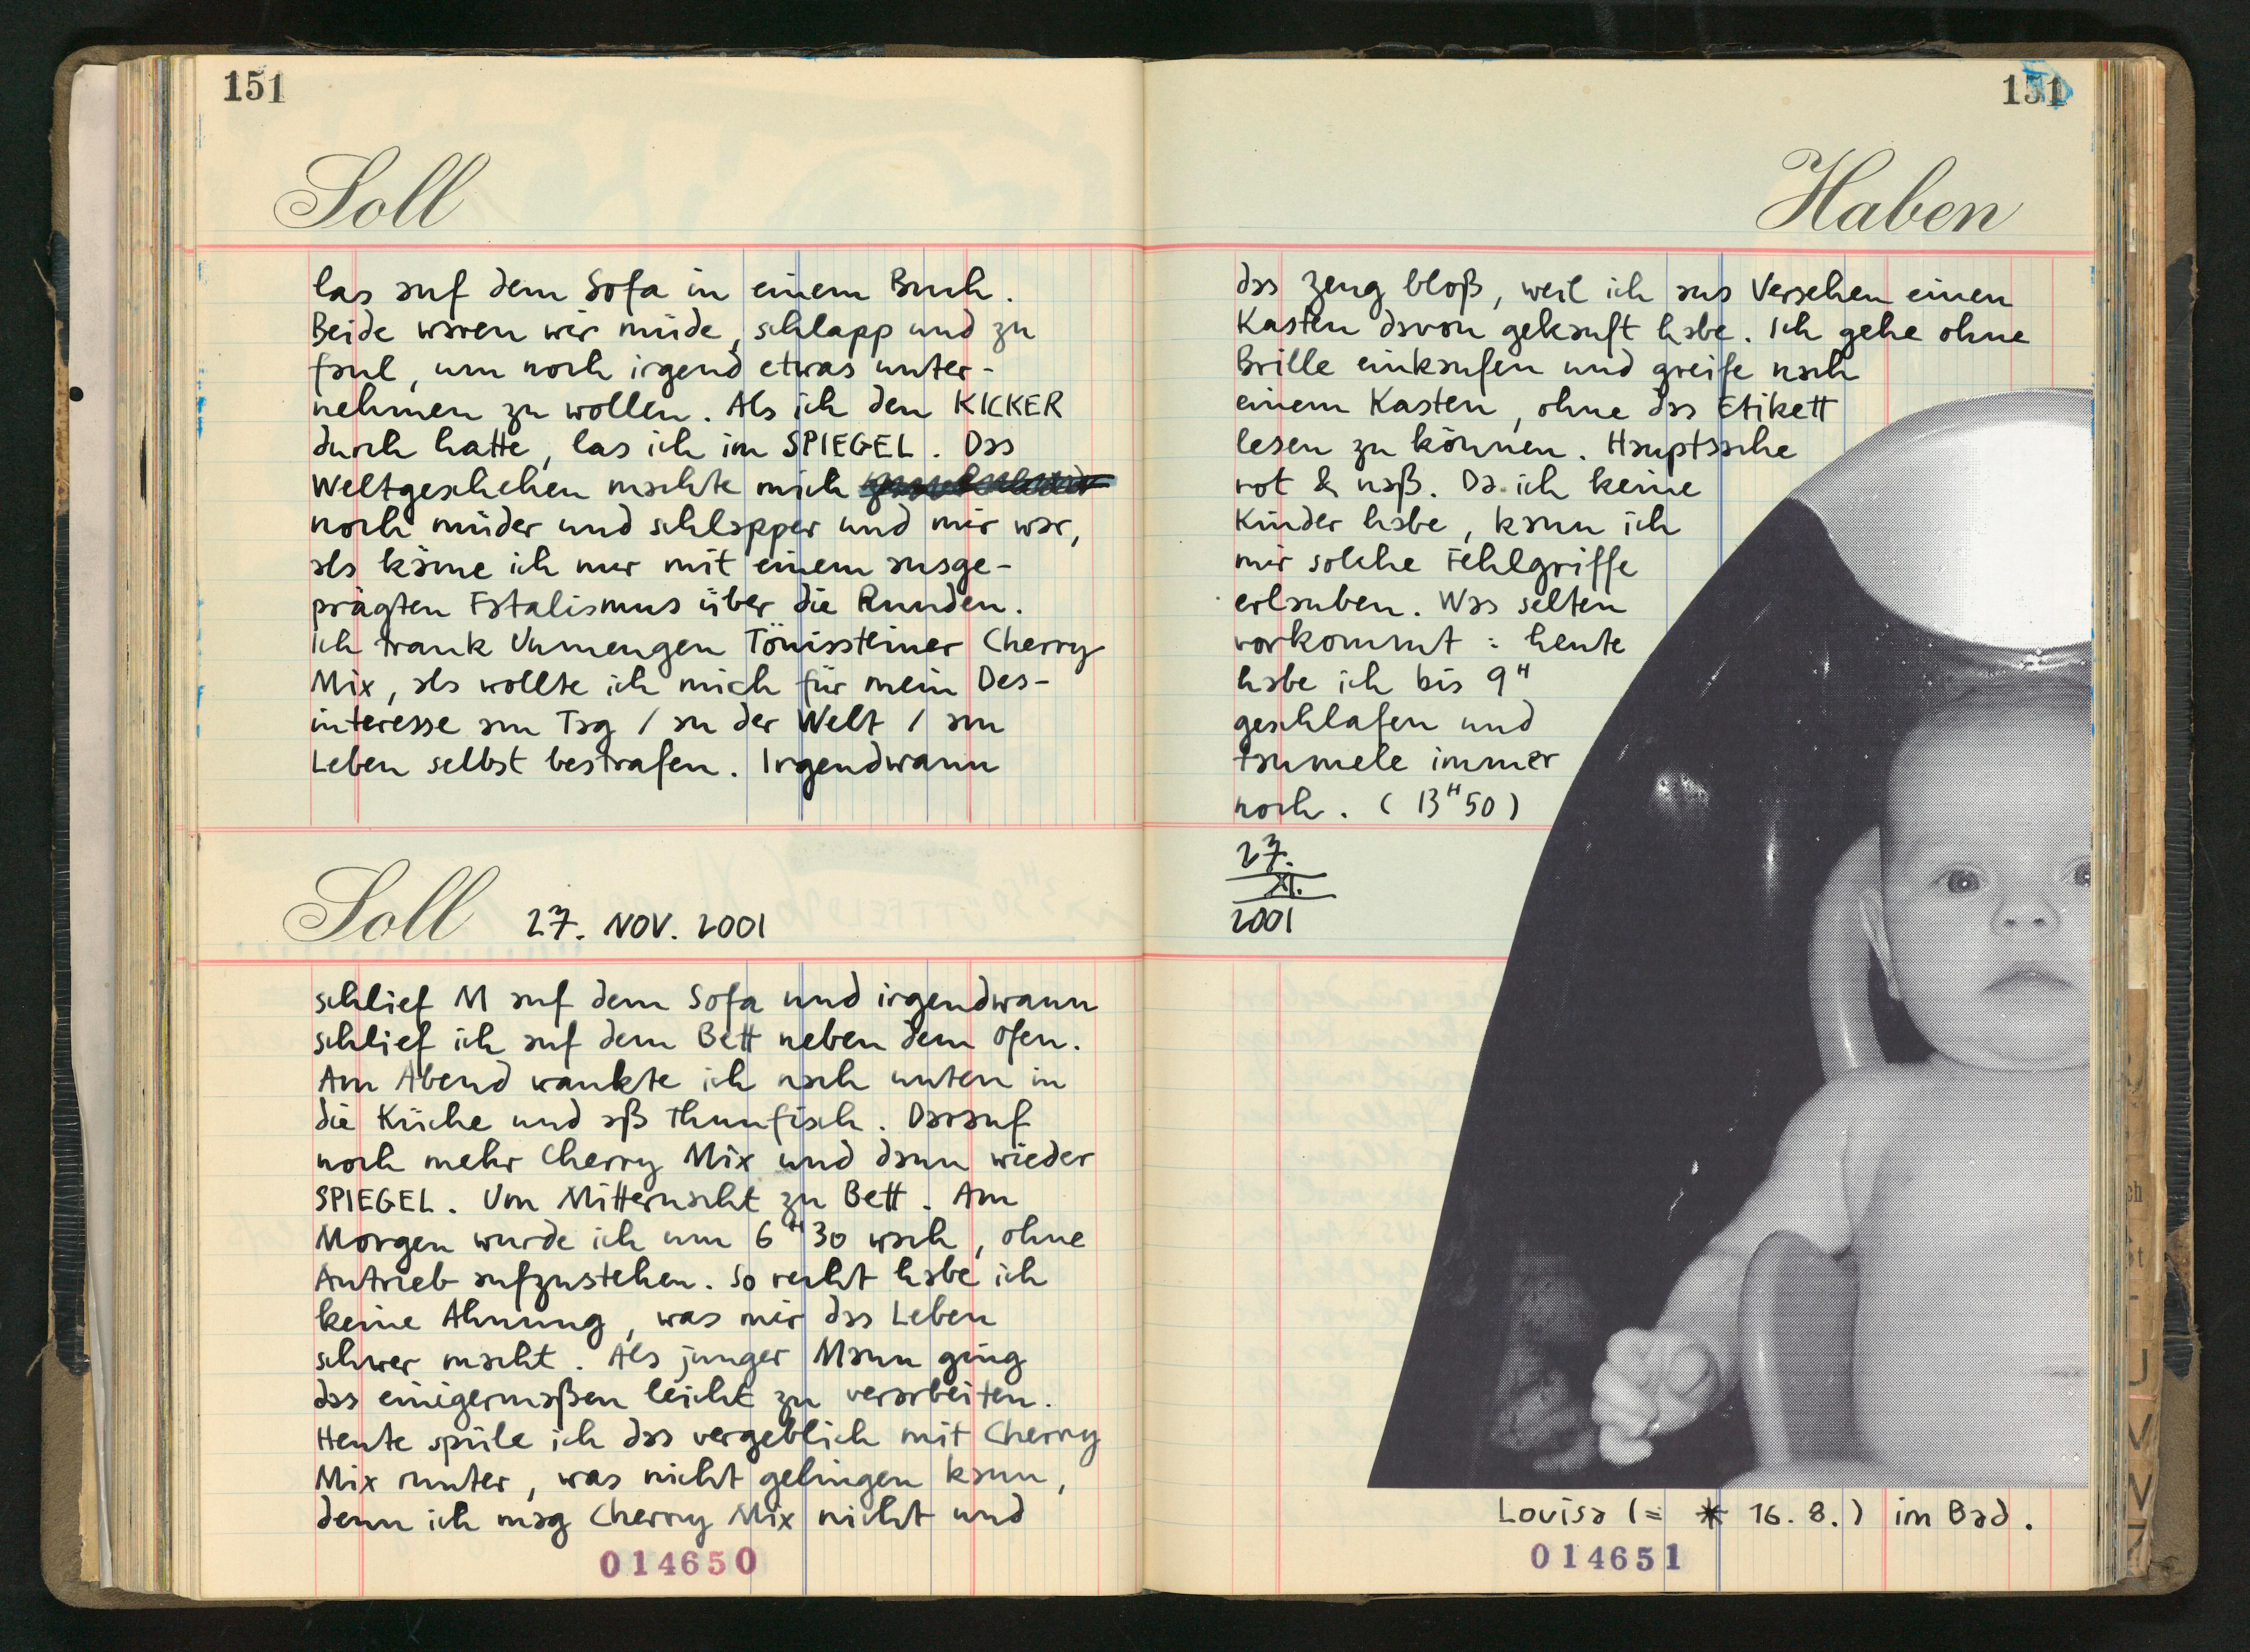 151
Soll
las auf dem Sofa in einem Buch.
Beide waren wir müde, schlapp und zu
faul, um noch irgend etwas unter-
nehmen zu wollen. Als ich den KICKER
durch hatte, las ich im SPIEGEL. Das
Weltgeschehen machte mich
noch müder und schlapper und mir war,
als käme ich nur mit einem ausge-
prägten Fatalismus über die Runden.
Ich trank Unmengen Tönissteiner Cherry
Mix, als wollte ich mich für mein Des-
interesse am Tag / an der Welt / am
Leben selbst bestrafen. Irgendwann
Soll 27. NOV. 2001
schlief M auf dem Sofa und irgendwann
schlief ich auf dem Bett neben dem Ofen.
Am Abend wankte ich nach unten in
die Küche und aß Thunfisch. Darauf
noch mehr Cherry Mix und dann wieder
SPIEGEL. Um Mitternacht zu Bett. Am
Morgen wurde ich um 6H30 wach, ohne
Antrieb aufzustehen. So recht habe ich
keine Ahnung, was mir das Leben
schwer macht. Als junger Mann ging
das einigermaßen leicht zu verarbeiten.
Heute spüle ich das vergeblich mit Cherry
Mix runter, was nicht gelingen kann,
denn ich mag Cherry Mix nicht und
014650
151
Haben
das Zeug bloß, weil ich aus Versehen einen
Kasten davon gekauft habe. Ich gehe ohne
Brille einkaufen und greife nach
einem Kasten, ohne das Etikett
lesen zu können. Hauptsache
rot & naß. Da ich keine
Kinder habe, kann ich
mir solche Fehlgriffe
erlauben. Was selten
vorkommt: heute
habe ich bis 9H
geschlafen und
taumele immer
noch. (13H50)
27.
XI.
2001
Louisa (= * 16. 8.) im Bad.
014651